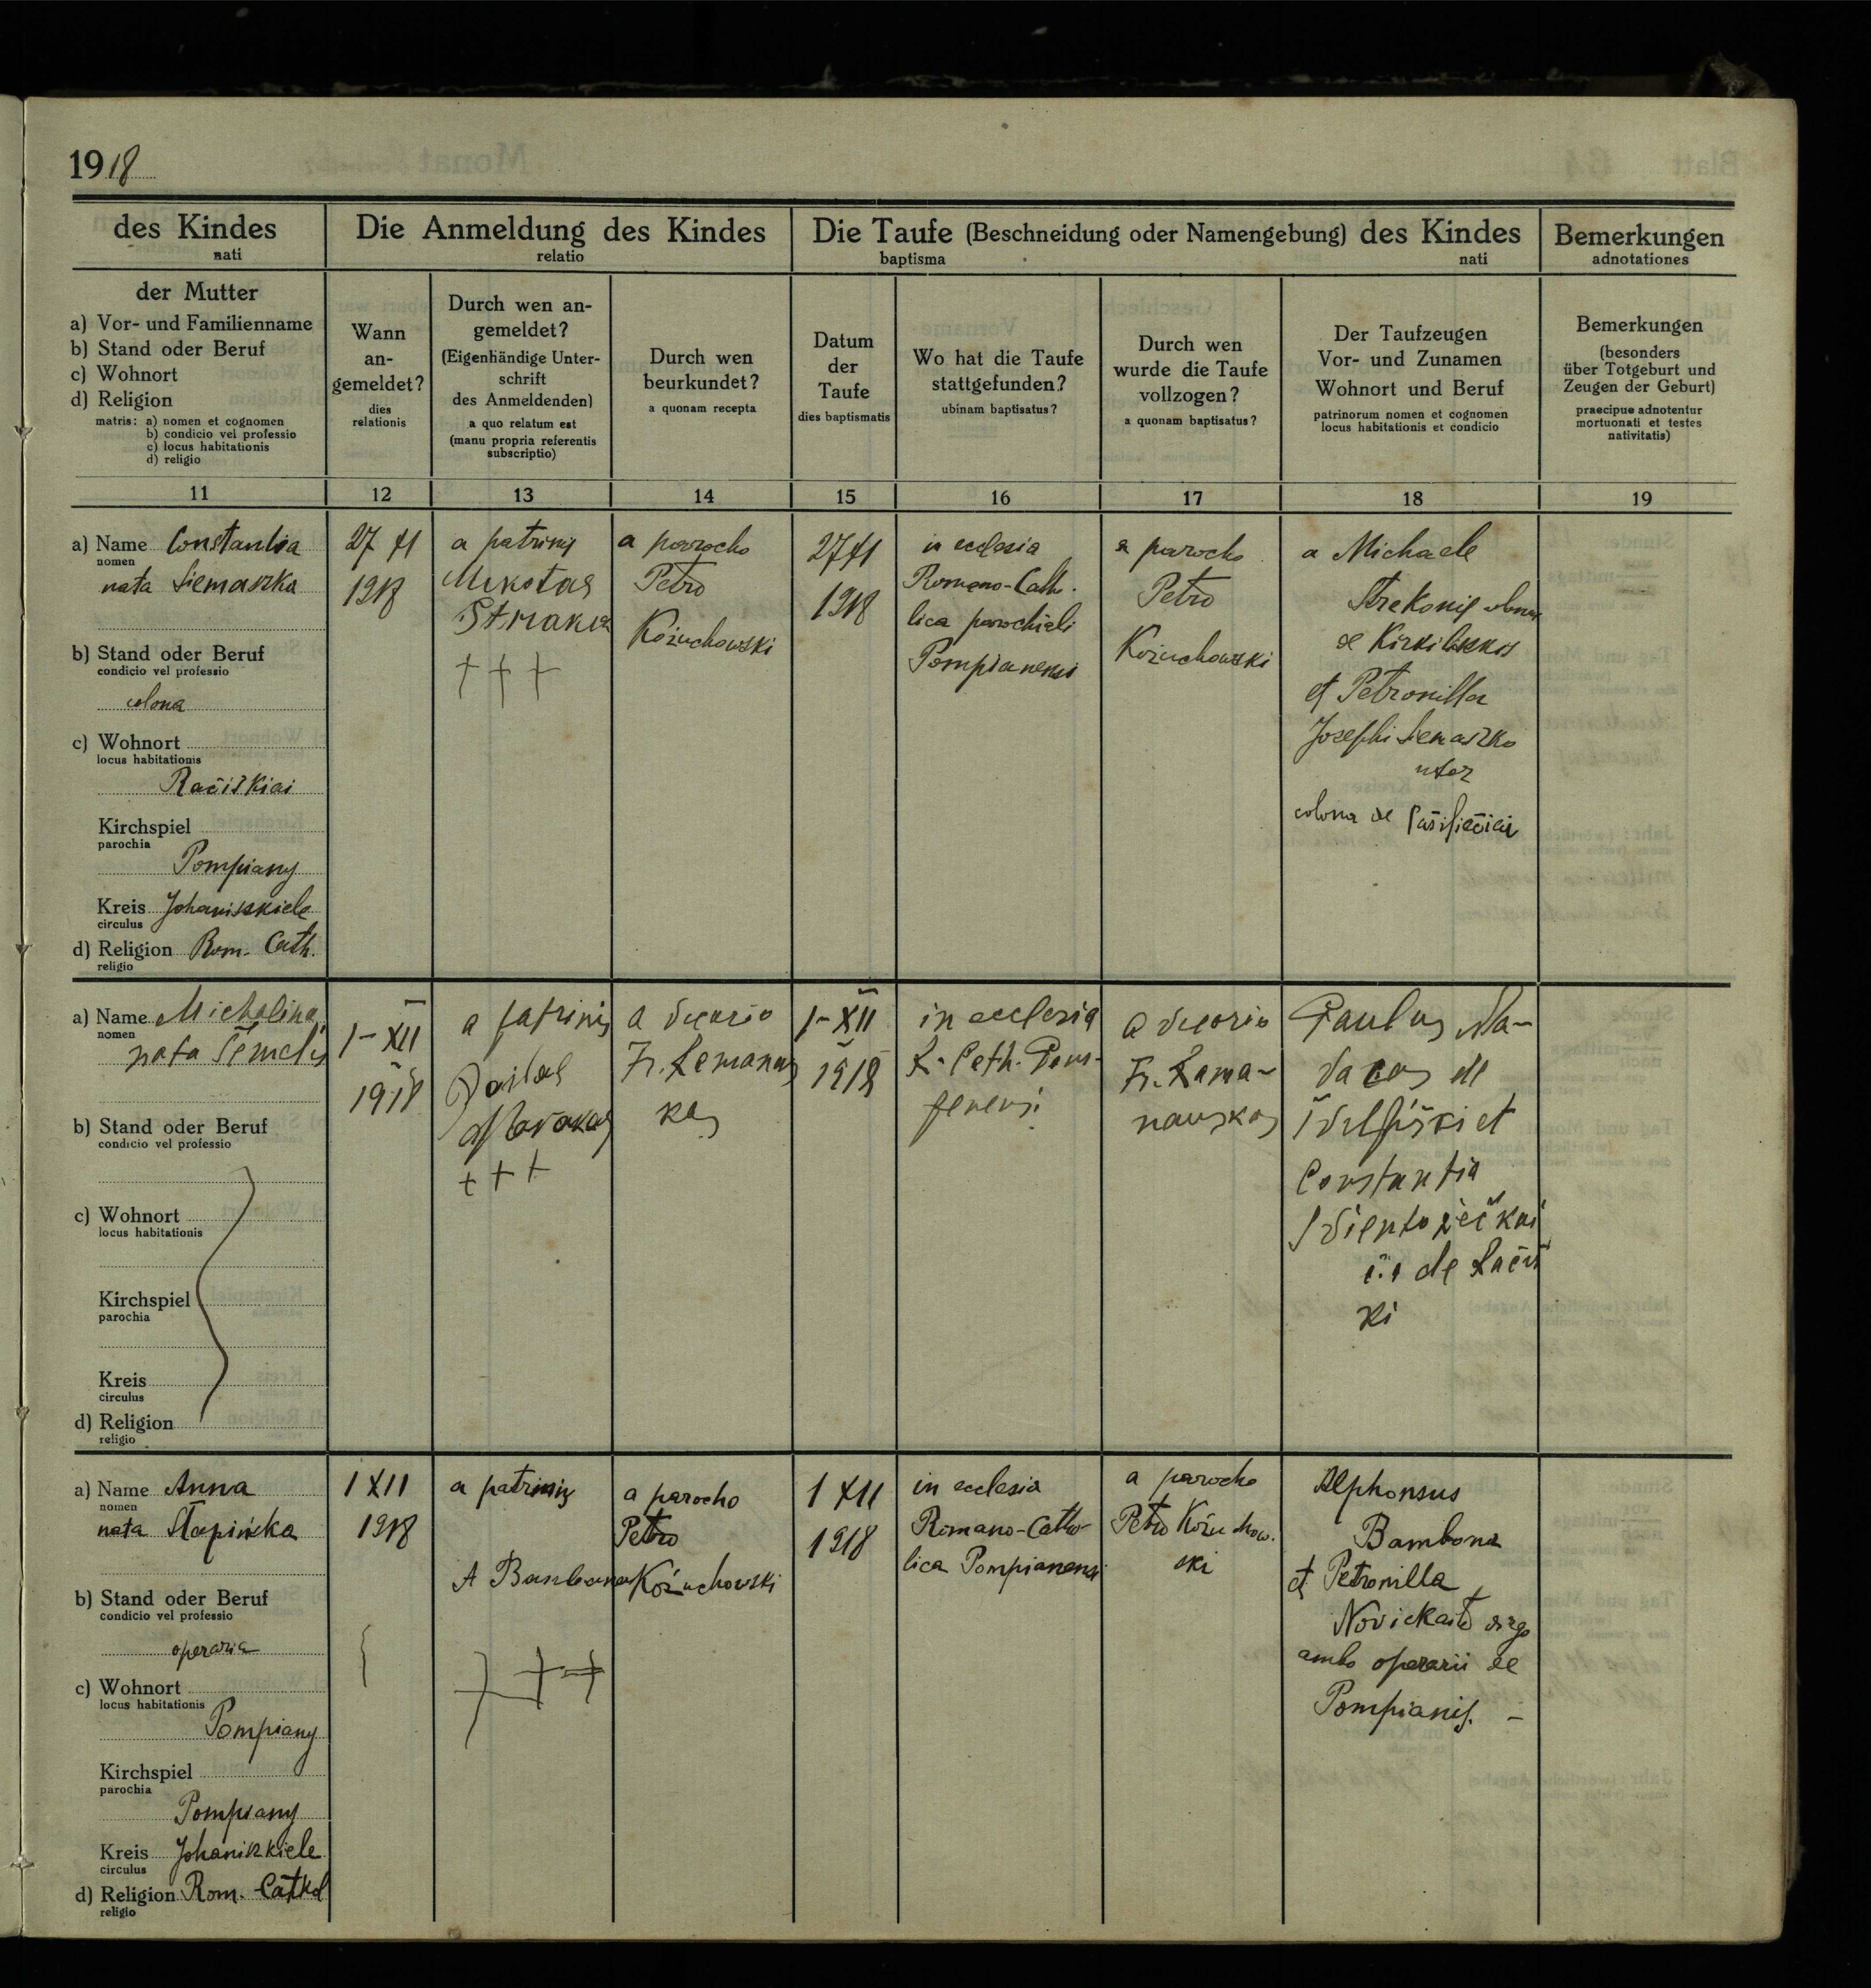 1918
des Kindes
nati
Die Anmeldung des Kindes
relatio
Die Taufe (Beschneidung oder Namengebung) des Kindes
baptisma nati
Bemerkungen
adnotationes
der Mutter
a) Vor- und Familienname
b) Stand oder Beruf
c) Wohnort
d) Religion
matris: a) nomen et cognomen
b) condicio vel professio
c) locus habitationis
d) religio
Wann
an-
gemeldet?
dies
relationis
Durch wen an-
gemeldet?
(Eigenhändige Unter-
schrift
des Anmeldenden)
a quo relatum est
(manu propria referentis
subscriptio)
Durch wen
beurkundet?
a quonam recepta
Datum
der
Taufe
dies baptismatis
Wo hat die Taufe
stattgefunden?
ubinam baptisatus?
Durch wen
wurde die Taufe
vollzogen?
a quonam baptisatus?
Der Taufzeugen
Vor- und Zunamen
Wohnort und Beruf
patrinorum nomen et cognomen
locus habitationis et condicio
Bemerkungen
(besonders
über Totgeburt und
Zeugen der Geburt)
praecipue adnotentur
mortuonati et testes
nativitatis)
11 12 13 14 15 16 17 18 19
a) Name Constantia
nomen
nata Siemaszka
b) Stand oder Beruf
condicio vel professio
colona
c) Wohnort
locus habitationis
Račiškiai
Kirchspiel
parochia
Pompiany
Kreis Johaniszkiele
circulus
d) Religion Rom. Cath.
religio
27 XI
1918
a patrinis
Mikołas
+ + +
a parocho
Petro
Kożuchowski
27 XI
1918
in ecclesia
Romano-Catho-
lica parochiali
Pompianensi
a parocho
Petro
Kożuchowski
a Michaele
Strekonis
de
et Petronilla
Josephi Semaszko
uxor
colona de
a) Name Michalina
nomen
nata
b) Stand oder Beruf
condicio vel professio
c) Wohnort
locus habitationis
Kirchspiel
parochia
Kreis
circulus
d) Religion
religio
1-XII
1918
a patrinis
+ + +
a vicario
Fr.
kas
1-XII
1918
in ecclesia
R. Cath. Pom-
a vicario
Fr. Rama-
nauskas
Paulus
de
et
Constantia
de
ki
a) Name Anna
nomen
nata Stapińska
b) Stand oder Beruf
condicio vel professio
operaria
c) Wohnort
locus habitationis
Pompiany
Kirchspiel
parochia
Pompiany
Kreis Johaniszkiele
circulus
d) Religion Rom. Cathol
religio
1 XII
1918
a patrinis
A Bambona
a parocho
Petro
Kożuchowski
1 XII
1918
in ecclesia
Romano-Catho-
lica Pompianensi
a parocho
Petro Kożuchow.
ski
Alphonsus
Bambona
et Petronilla
Novickaitė virgo
ambo operarii de
Pompianis. –